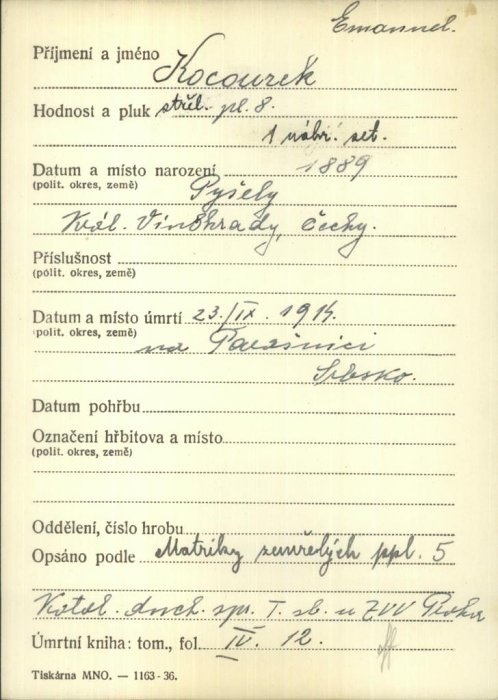 Emanuel.
Příjmení a jméno Kocourek
Hodnost a pluk střel. pl. 8.
1 náhr. set.
Datum a místo narození 1889
(polit. okres, země) Pyšely
Král. Vinohrady, Čechy.
Příslušnost
(polit. okres, země)
Datum a místo úmrtí 23./IX. 1914.
(polit. okres, země) na Parašnici
Srbsko.
Datum pohřbu
Označení hřbitova a místo
(polit. okres, země)
Oddělení, číslo hrobu
Opsáno podle Matriky zemřelých ppl. 5
Katol. duch. spr. I. sb. u ZVV Praha
Úmrtní kniha: tom., fol. IV. 12.
Tiskárna MNO. — 1163-36.